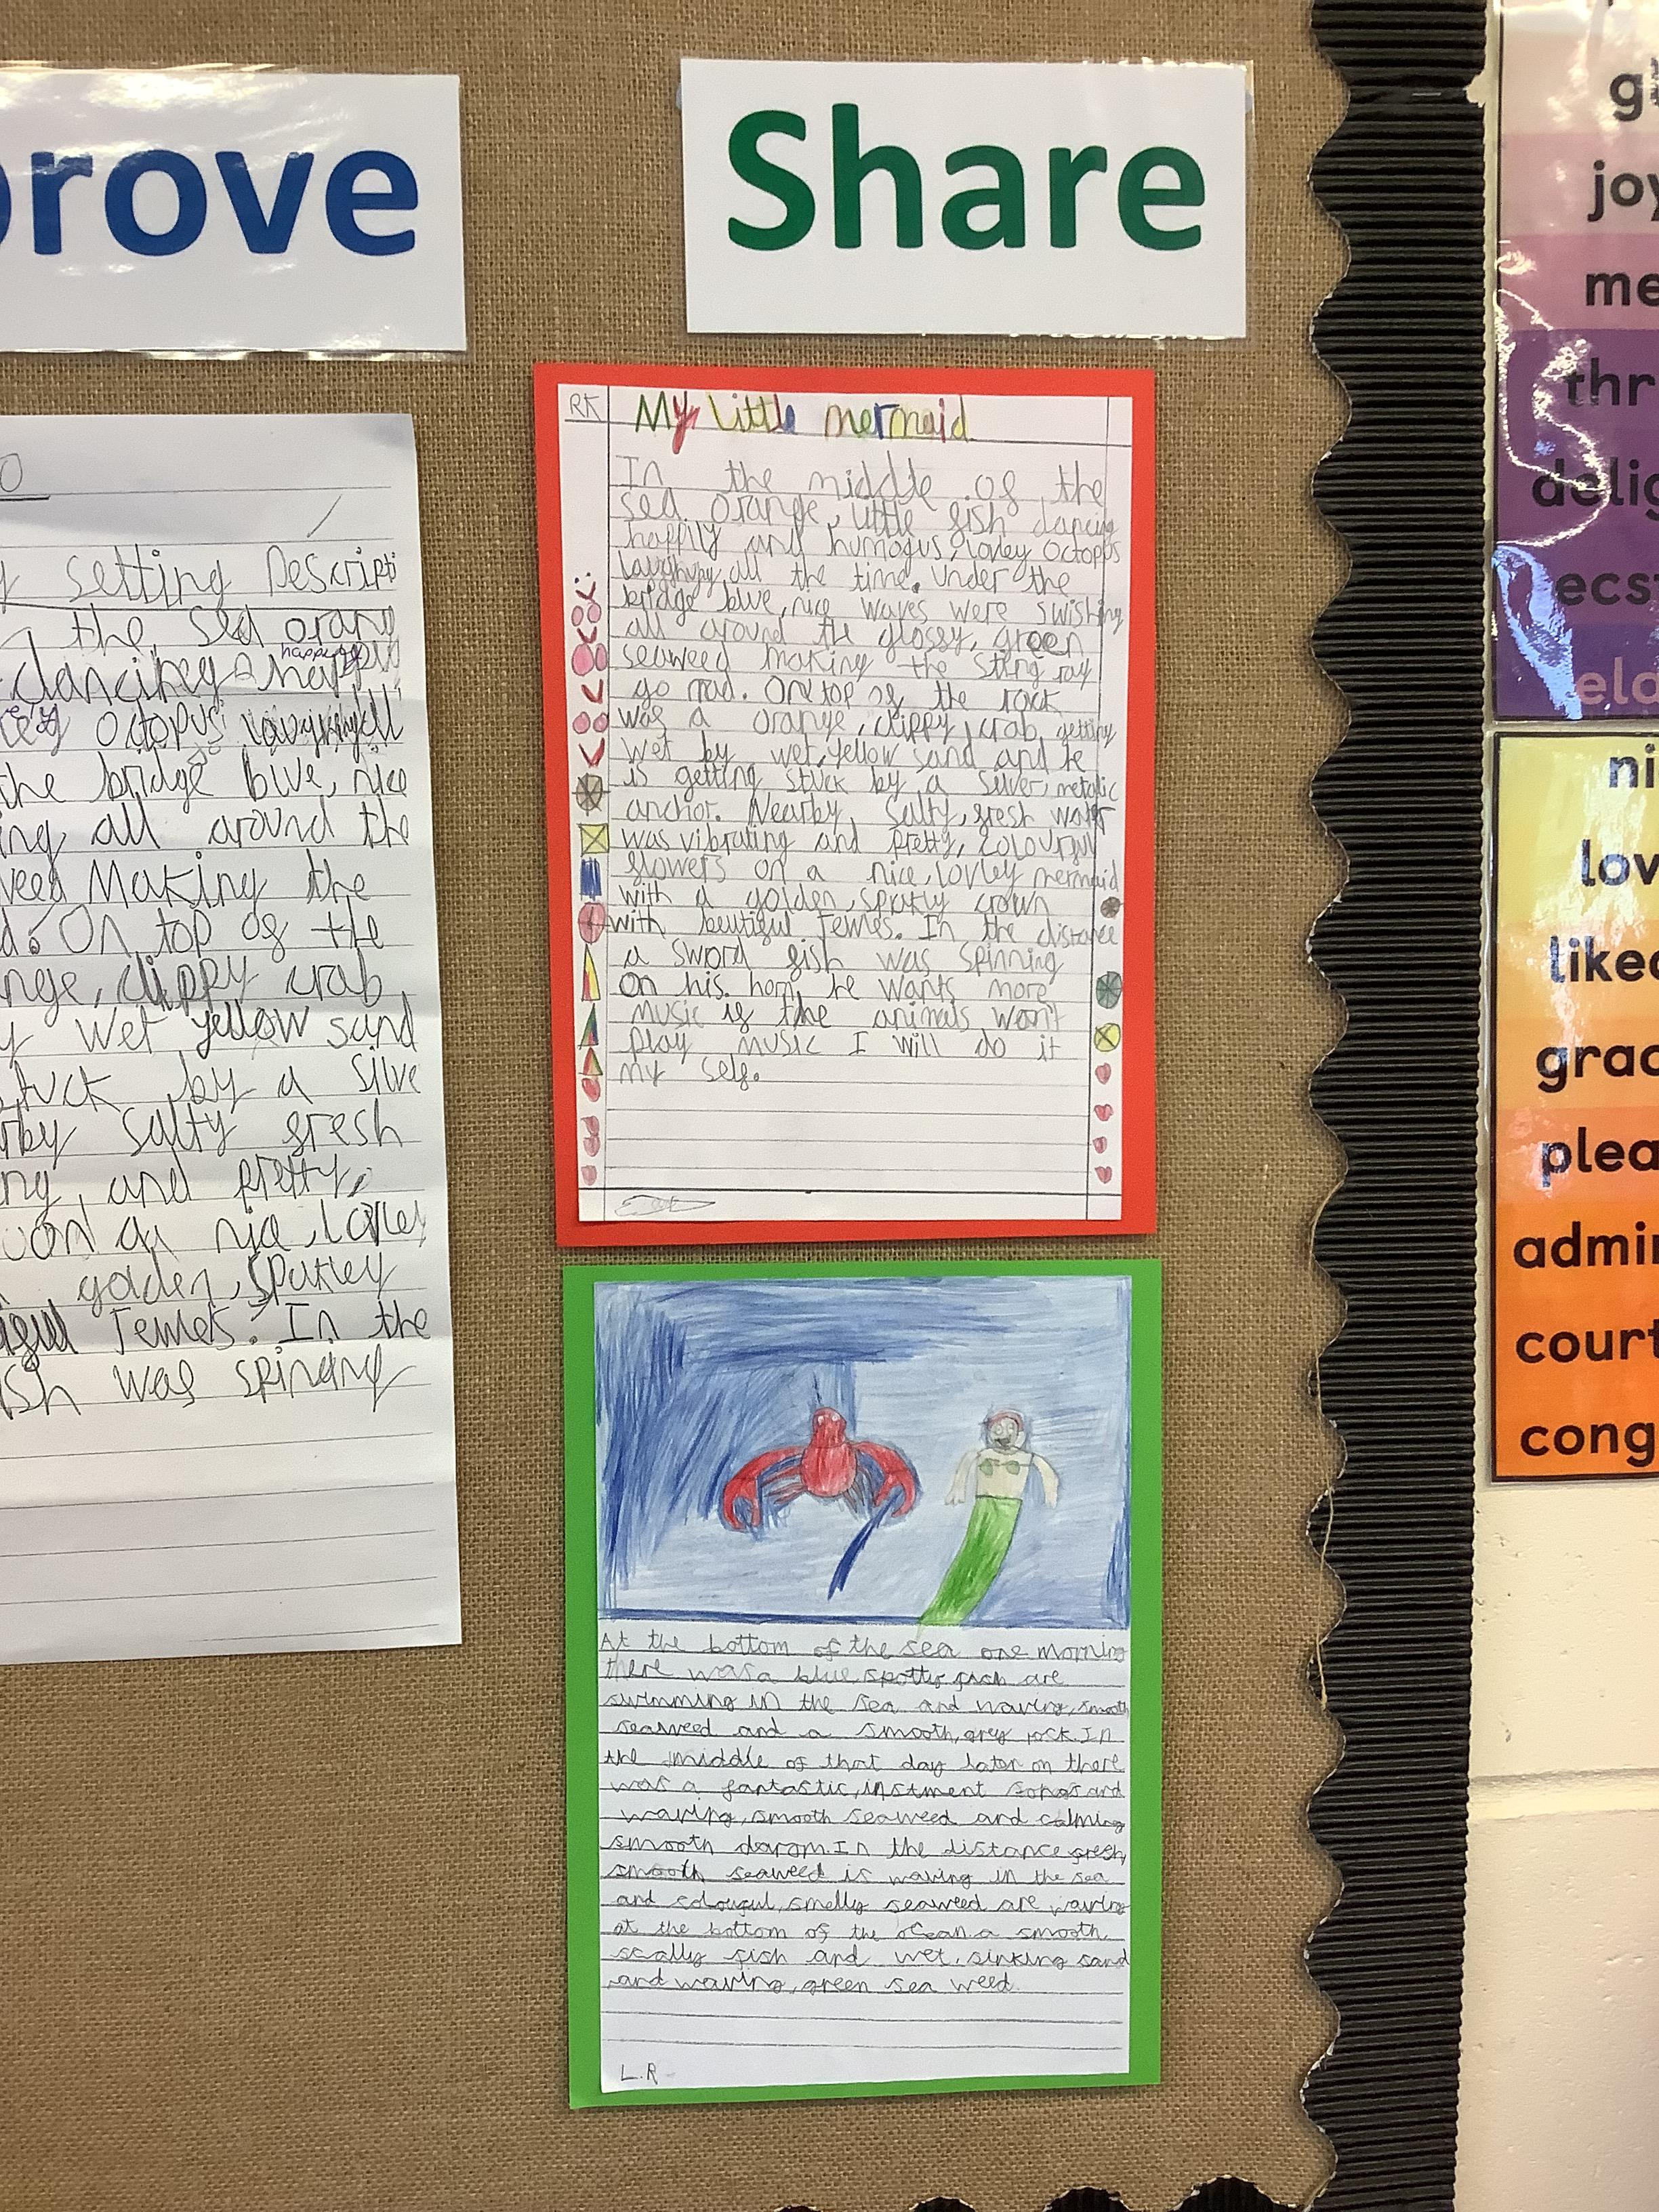 prove
Share
RK
My little mermaid
In the middle of the
sea orange, little fish dancing
happily and humogus, lovley octopus
laughing all the time. Under the
bridge blue, nice waves were swishing
all around the glossy, green
seaweed making the sting ray
go mad. On top of the rock
was a orange, clippy crab, getting
wet by wet, yellow sand and he
is getting stuck by a silver, metalic
anchor. Nearby salty, fresh water
was vibrating and pretty, colourful
flowers on a nice, lovley mermaid
with a golden, sparkly crown
with beutiful Jewles. In the distance
a sword fish was spinning
on his horn, he wants more
music if the animals won't
play music I will do it
my self.
At the bottom of the sea one morning
there was a blue, spotty fish are
swimming in the sea and waving, smooth
seaweed and a smooth, grey rock. In
the middle of that day later on there
was a fantastic, instment songs and
waving, smooth seaweed and calming
smooth In the distance green,
smooth seaweed is waving in the sea
and colouful, smelly seaweed are waving
at the bottom of the ocean a smooth,
scally fish and wet, sinking sand
and waving, green sea weed.
L.R
setting Descripti
the sea orang
dancing happ
octopus
the bridge blue, nice
ing all around the
weed Making the
d. On top of the
nge, clippy crab
y wet yellow sand
tuck by a silve
rby salty fresh
ng, and pretty,
on a nice, lovley
golden, sparkley
Jewles. In the
ish was spinang
joy
me
thr
delig
ecst
ela
ni
lov
liked
grac
plea
admir
court
cong